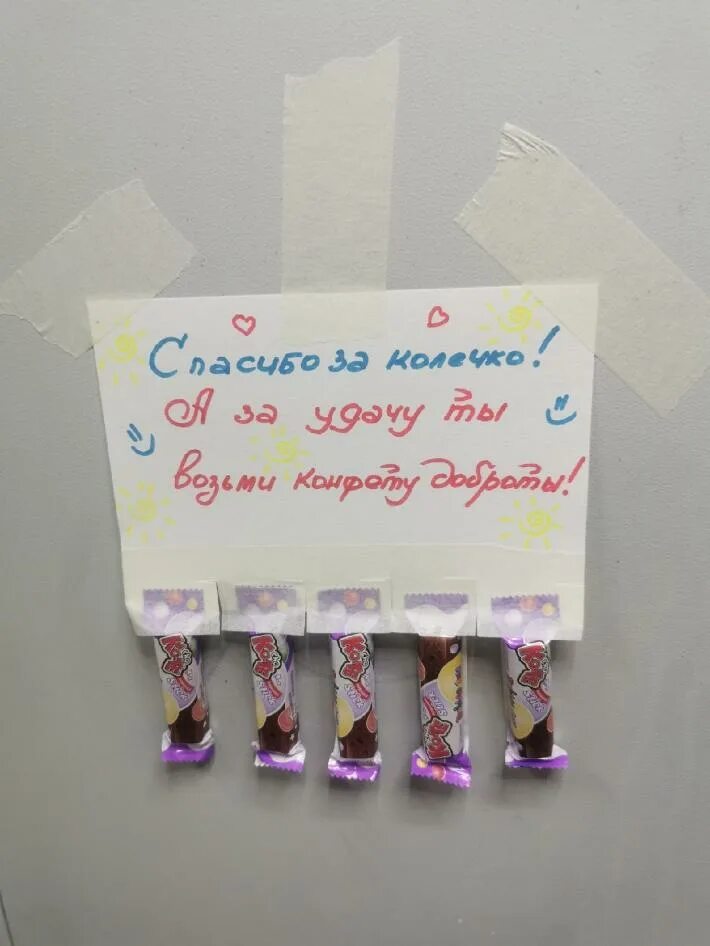 Спасибо за колечко!
А за удачу ты
возьми конфету доброты!